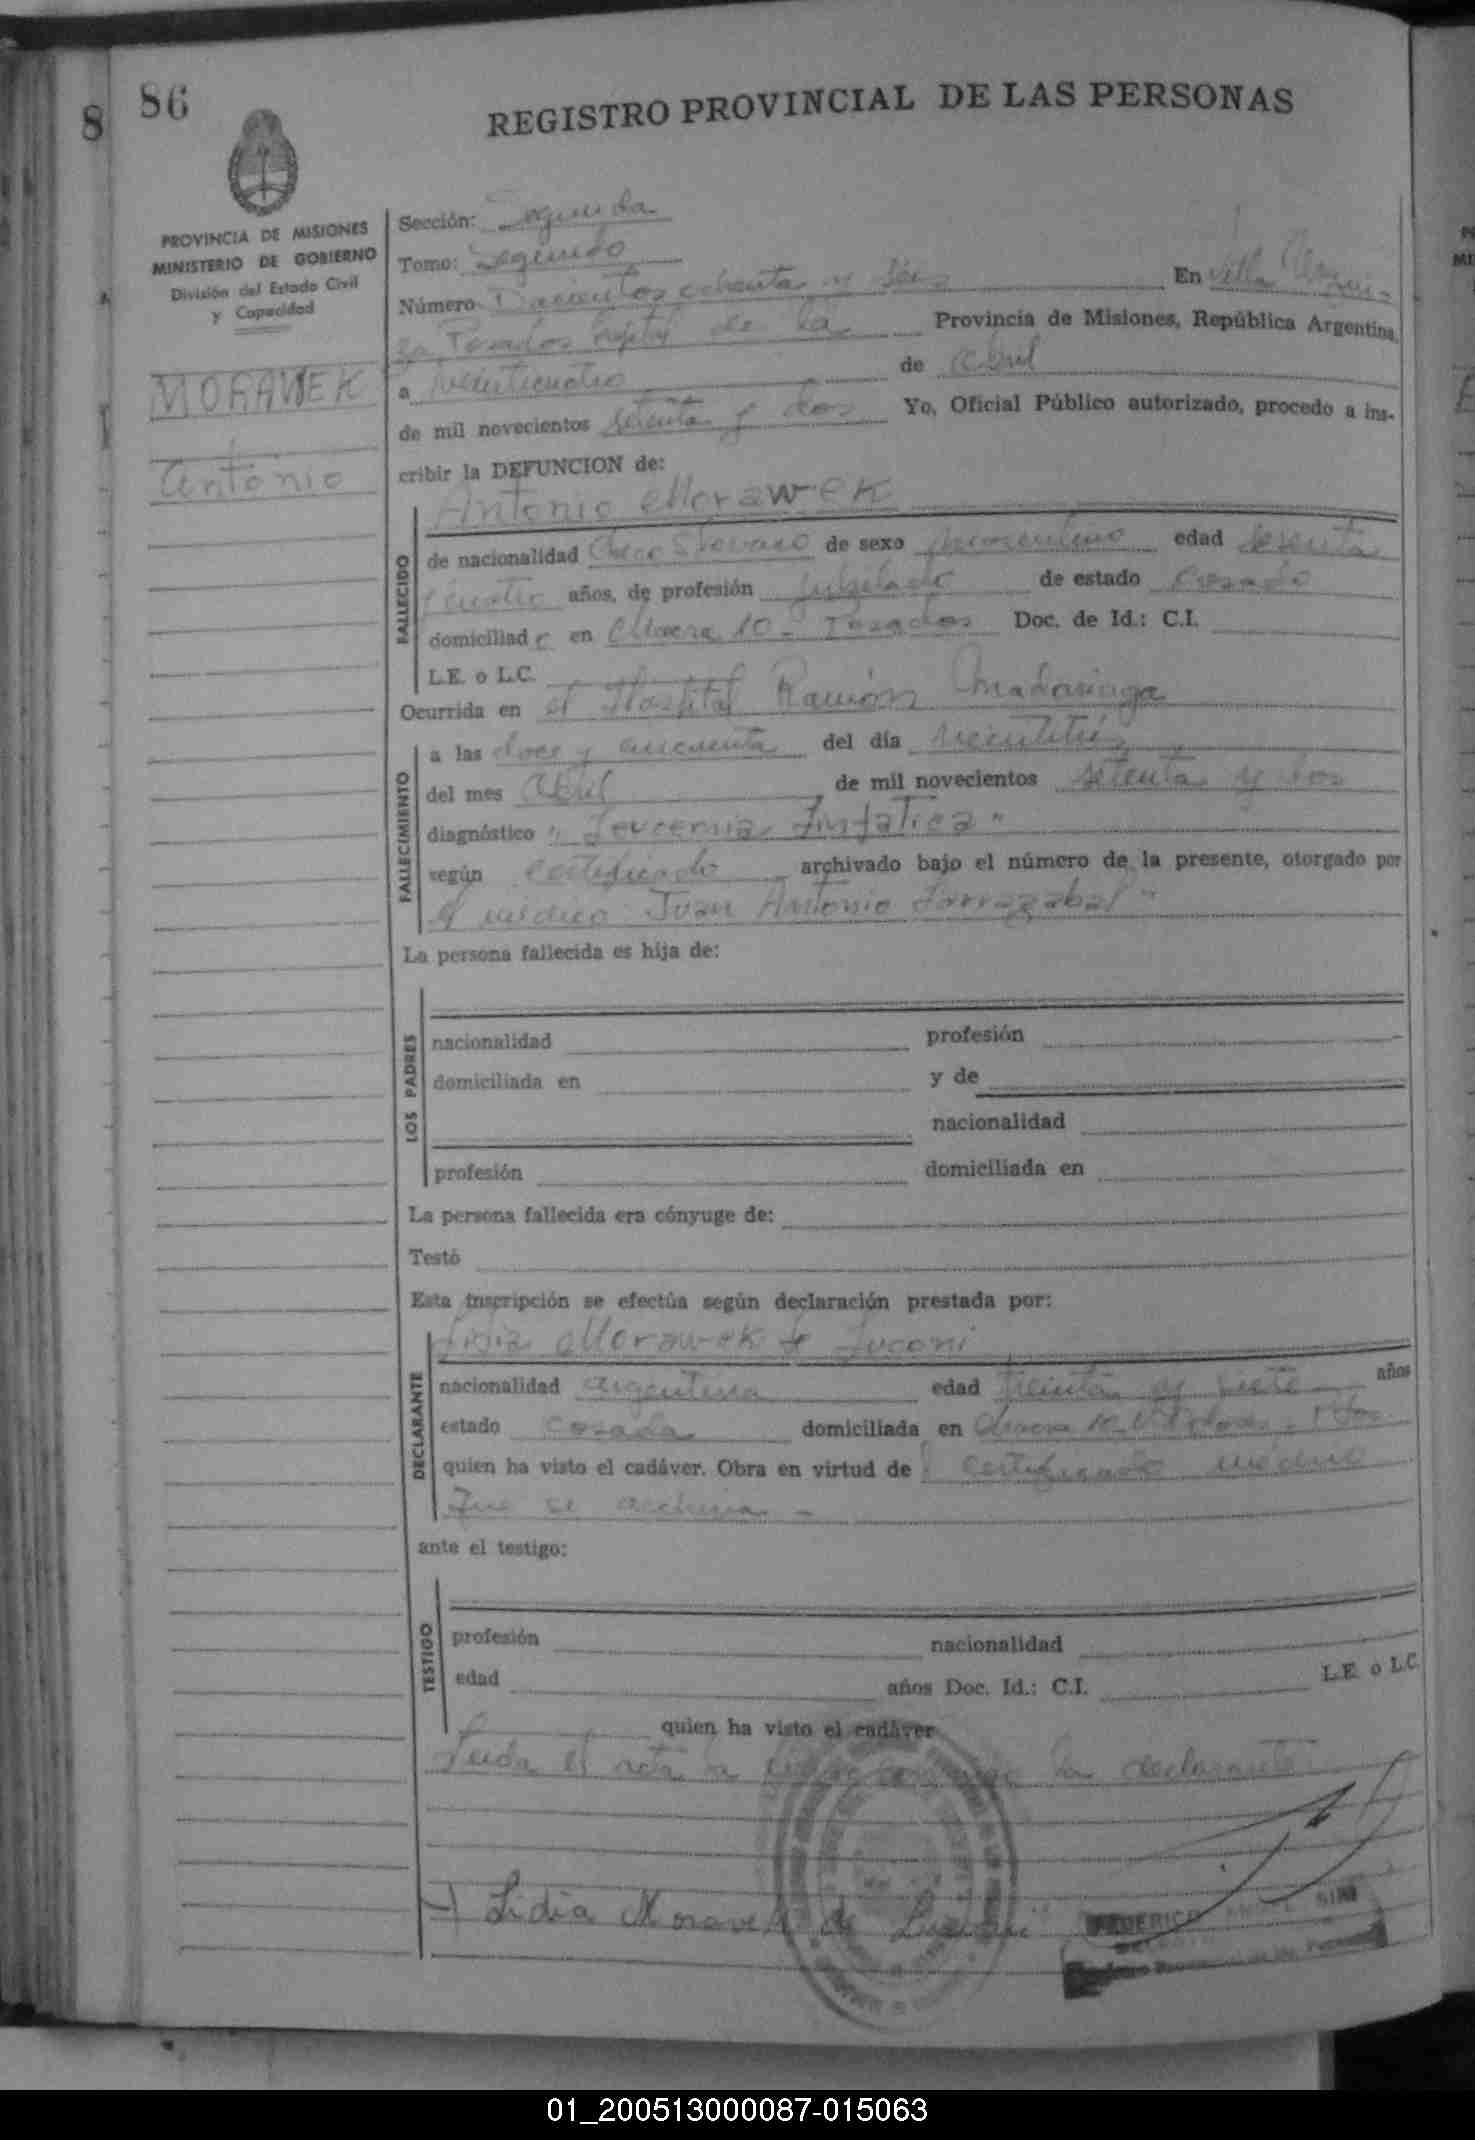 86
8
REGISTRO PROVINCIAL DE LAS PERSONAS
PROVINCIA DE MISIONES
MINISTERIO DE GOBIERNO
División del Estado Civil
y Capacidad
MORAWEK
Antonio
Sección: Segunda
Tomo: Segundo
Número Doscientos ochenta y seis En Villa Urqui-
za, Posadas Capital de la Provincia de Misiones, República Argentina,
a veinticuatro de Abril
de mil novecientos setenta y dos Yo, Oficial Público autorizado, procedo a ins-
cribir la DEFUNCION de:
Antonio Morawek
FALLECIDO
de nacionalidad Checo Slovaco de sexo masculino edad sesenta
y cuatro años, de profesión jubilado de estado casado
domiciliado en Chacra 10 - Posadas Doc. de Id.: C.I.
L.E. o L.C.
Ocurrida en el Hospital Ramón Madariaga
FALLECIMIENTO
a las doce y cincuenta del día veintitrés
del mes Abril de mil novecientos setenta y dos
diagnóstico " Leucemia Linfatica "
según certificado archivado bajo el número de la presente, otorgado por
el médico Juan Antonio Larrazabal "
La persona fallecida es hija de:
LOS PADRES
nacionalidad profesión
domiciliada en y de
nacionalidad
profesión domiciliada en
La persona fallecida era cónyuge de:
Testó
Esta inscripción se efectúa según declaración prestada por:
Lidia Morawek de Luconi
DECLARANTE
nacionalidad argentina edad treinta y siete años
estado casada domiciliada en Chacra
quien ha visto el cadáver. Obra en virtud del certificado médico
que se archiva -
ante el testigo:
TESTIGO
profesión nacionalidad
edad años Doc. Id.: C.I. L.E. o L.C.
quien ha visto el cadáver
Leida el acta la la declarante
Lidia Moravek de Luconi
FEDERICO
01_200513000087-015063